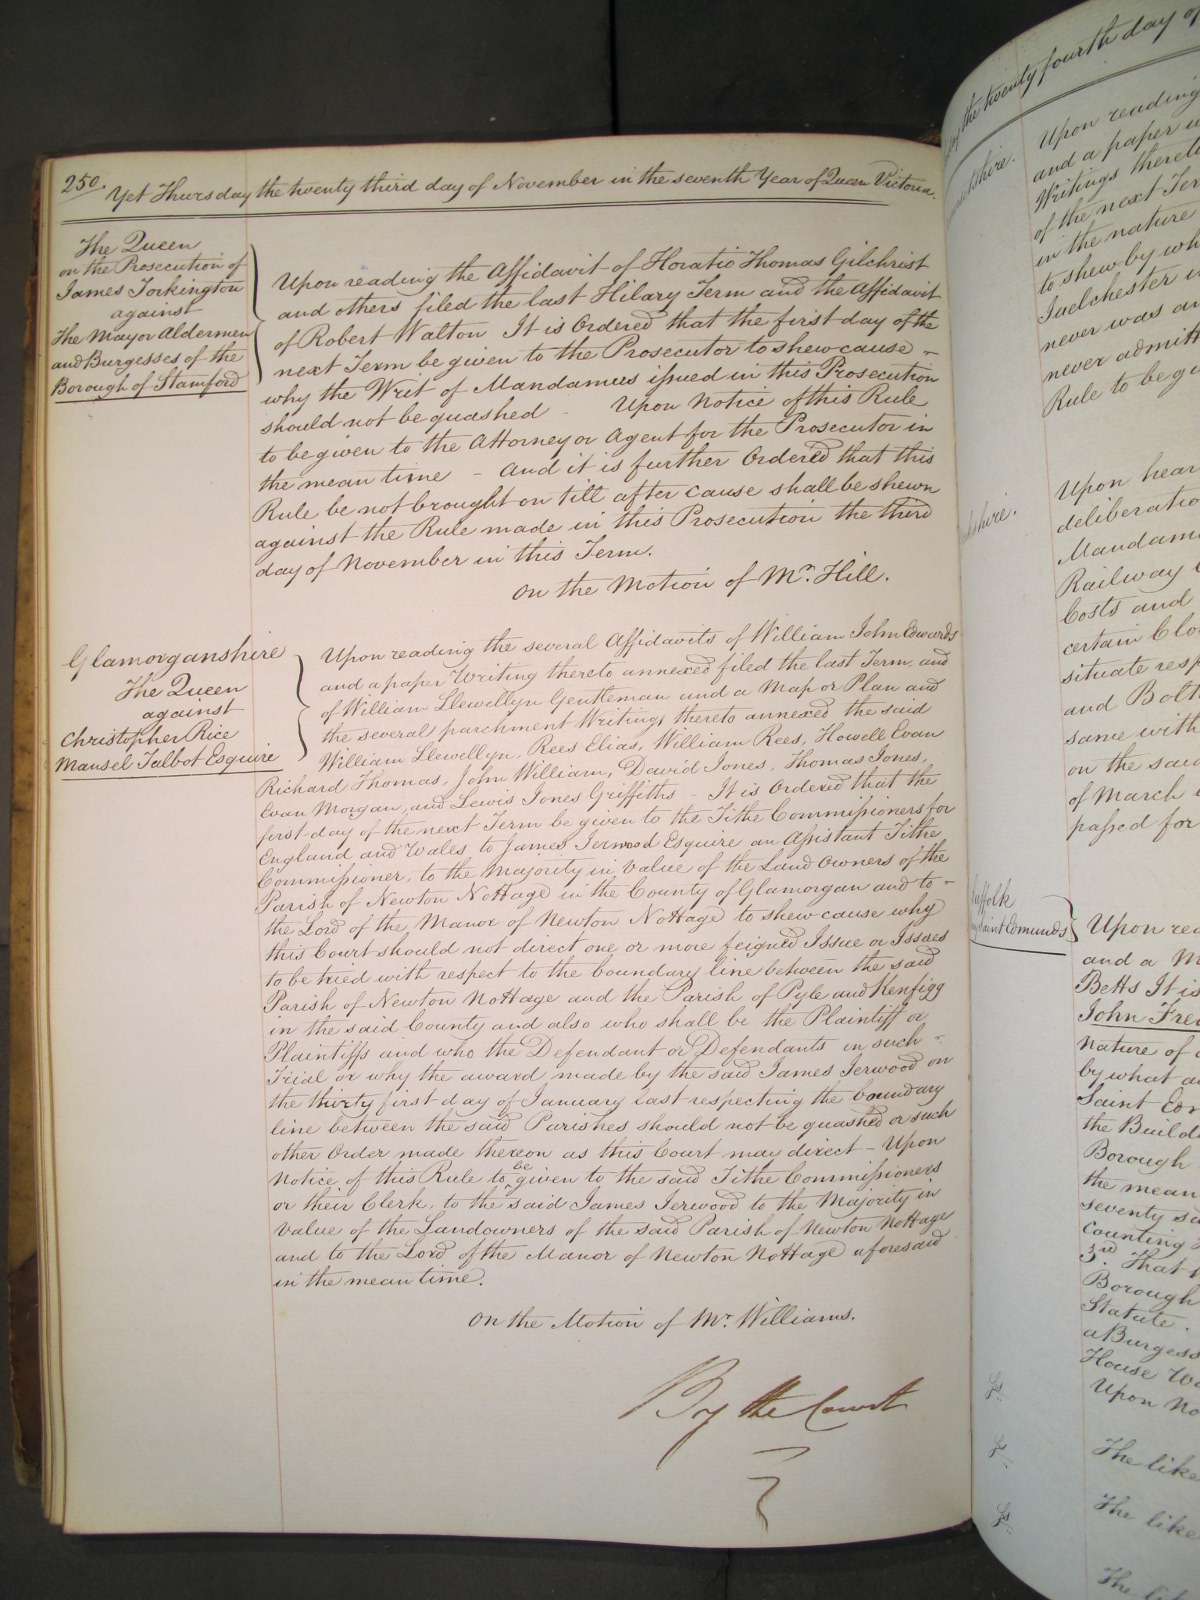 250.
Yet Thursday the twenty third day of November in the seventh Year of Queen Victoria.
The Queen
on the Prosecution of
James Torkington
against
The Mayor Aldermen
and Burgesses of the
Borough of Stamford
Upon reading the Affidavit of Horatio Thomas Gilchrist
and others filed the last Hilary Term and the Affidavit
of Robert Walton It is Ordered that the first day of the
next Term be given to the Prosecutor to shew cause –
why the Writ of Mandamus issued in this Prosecution
should not be quashed – Upon Notice of this Rule
to be given to the Attorney or Agent for the Prosecutor in
the mean time – And it is further Ordered that this
Rule be not brought on till after cause shall be shewn
against the Rule made in this Prosecution the third
day of November in this Term.
On the Motion of Mr. Hill.
Glamorganshire
The Queen
against
Christopher Rice
Mansel Talbot Esquire
Upon reading the several Affidavits of William John Edwards
and a paper Writing thereto annexed filed the last Term, and
of William Llewellyn Gentleman and a Map or Plan and
the several parchment Writings thereto annexed the said
William Llewellyn, Rees Elias, William Rees, Howell Evan
Richard Thomas, John William, David Jones, Thomas Jones,
Evan Morgan, and Lewis Jones Griffiths – It is Ordered that the
first day of the next Term be given to the Tithe Commissioners for
England and Wales, to James Jerwood Esquire an Assistant Tithe
Commissioner, to the Majority in Value of the Land Owners of the
Parish of Newton Nottage in the County of Glamorgan and to –
the Lord of the Manor of Newton Nottage to shew cause why
this Court should not direct one or more feigned Issue or Issues
to be tried with respect to the boundary line between the said
Parish of Newton Nottage and the Parish of Pyle and Kenfigg
in the said County and also who shall be the Plaintiff or
Plaintiffs and who the Defendant or Defendants in such –
Trial or why the award made by the said James Jerwood on
the thirty first day of January last respecting the boundary
line between the said Parishes should not be quashed or such
other Order made thereon as this Court may direct – Upon
Notice of this Rule to be given to the said Tithe Commissioners
or their Clerk, to the said James Jerwood to the Majority in
Value of the Landowners of the said Parish of Newton Nottage
and to the Lord of the Manor of Newton Nottage aforesaid
in the mean time.
On the Motion of Mr. Williams.
By the Court
the twenty fourth day of
Upon reading
and a paper
Writings thereto
of the next Ter
in the nature
to shew by wh
Ivelchester
never was an
never admitt
Rule to be gi
Upon hear
deliberatio
Mandam
Railway
Costs and
certain Clo
situate resp
and Bolt
same with
on the said
of March
passed for
Suffolk
Saint Edmunds
Upon rea
and a M
Betts It is
John Fre
nature of
by what au
Saint Ed
the Build
Borough
the mean
seventy
counting
3rd. That
Borough
Statute.
a Burgess
House
Upon No
The like
The like
The lik